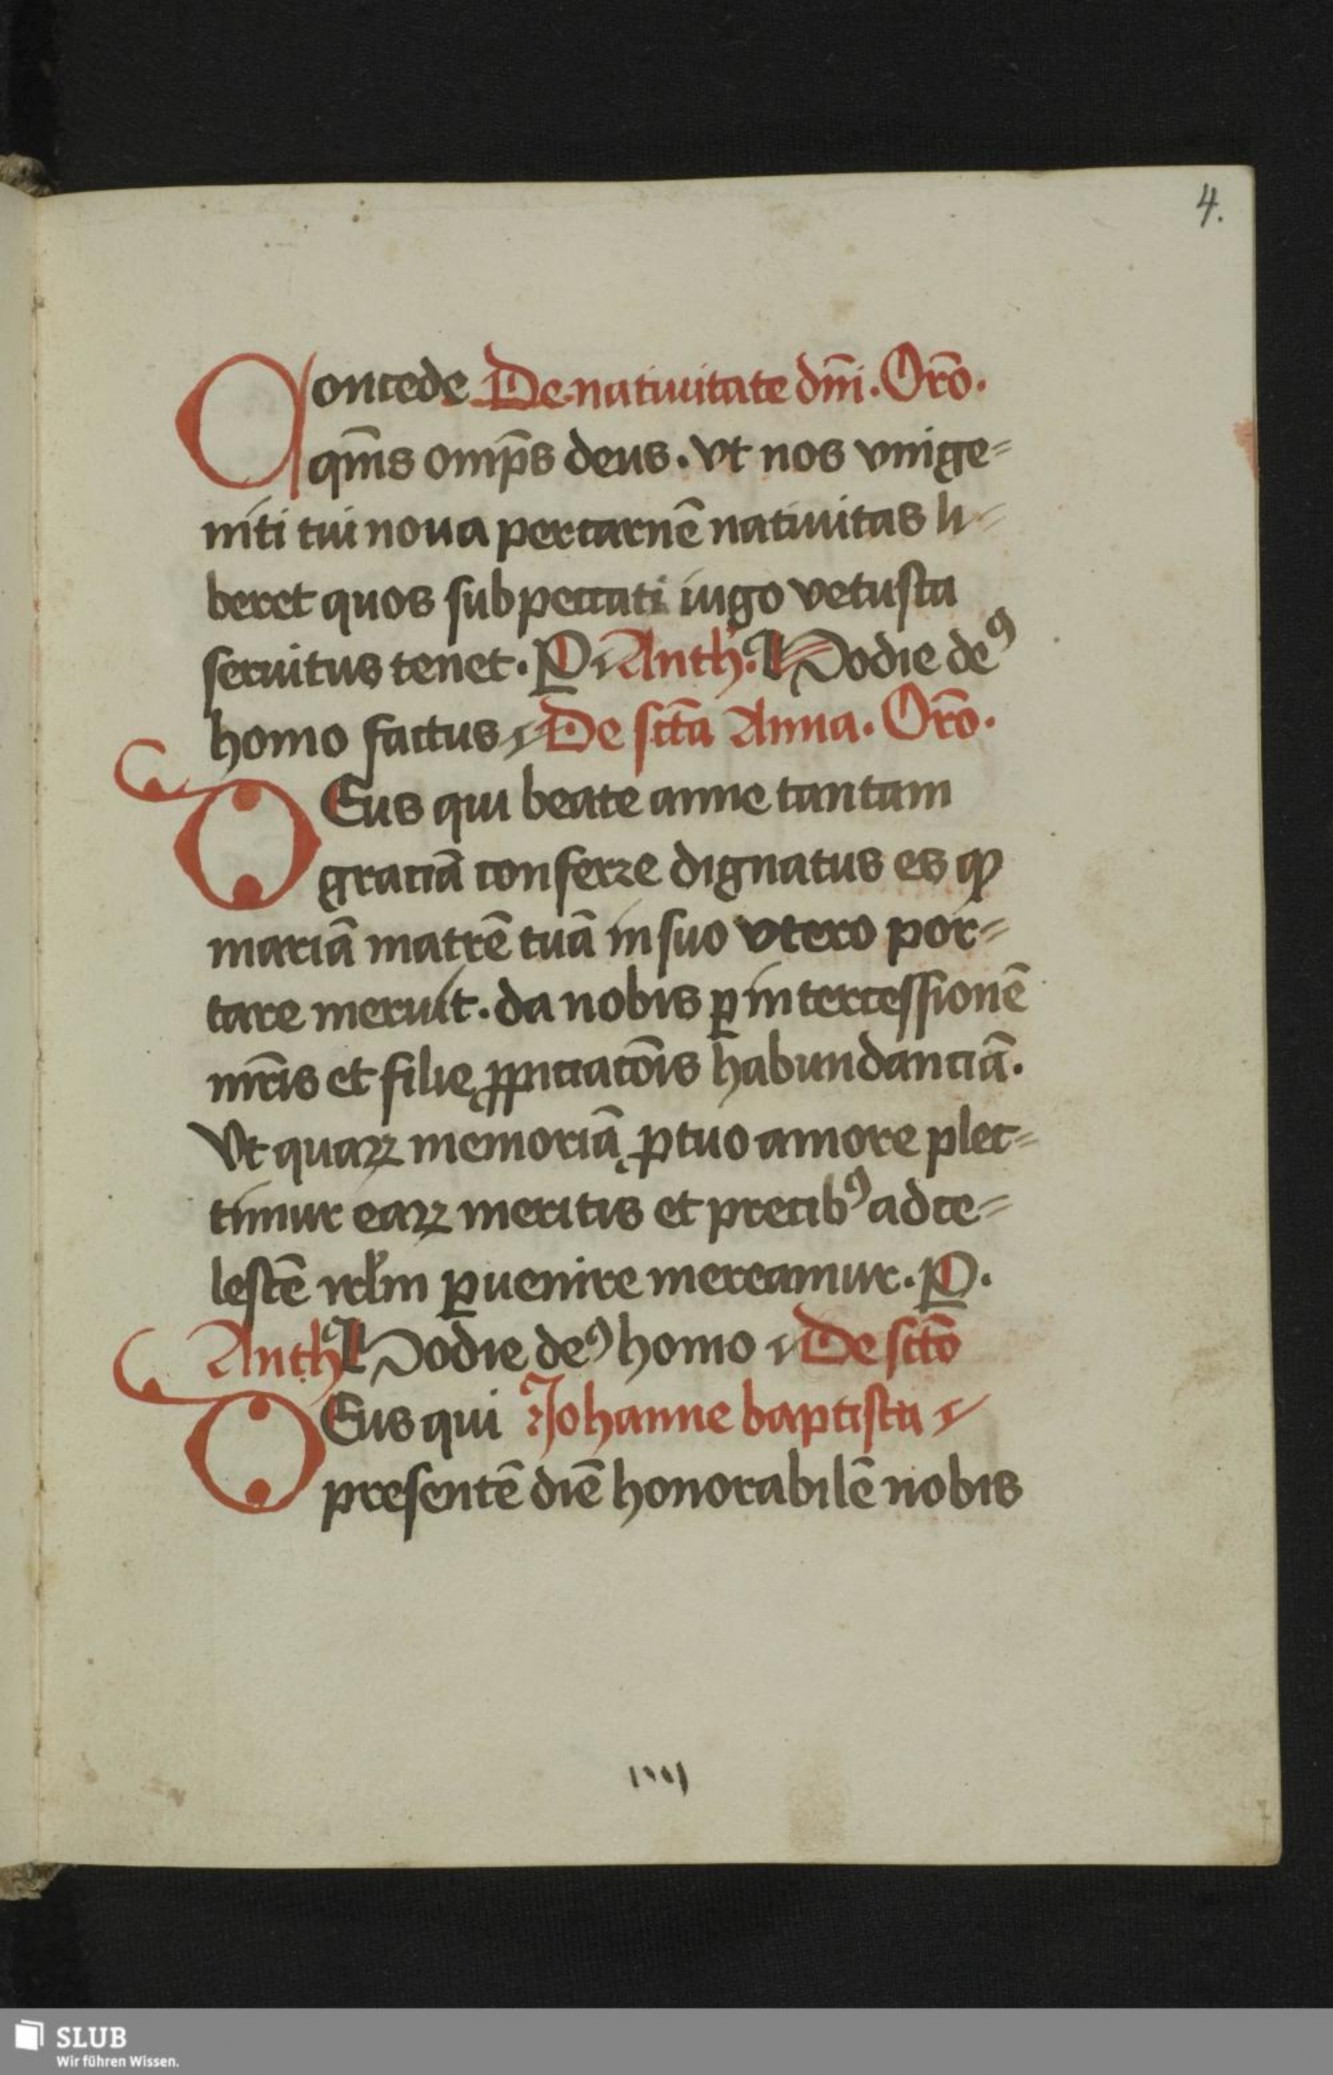 4.
Concede De natiuitate dn̄i. Orō.
qm̄s omp̄s deus. vt nos vnige=
niti tui noua per carnē natiuitas li=
beret quos sub peccati iugo vetusta
seruitus tenet. P. Anth. Hodie deꝰ
homo factus De sctā Anna. Orō.
DEus qui beate anne tantam
graciā conferre dignatus es qꝫ
mariā matrē tuā in suo vtero por=
tare meruit. da nobis ꝑ intercessionē
mr̄is et filię ꝓpiciacōis habundanciā.
Vt quaꝝ memoriā ꝓ tuo amore plec=
timur eaꝝ meritis et precibꝰ ad ce=
lestē irl̄m ꝑuenire mereamur. P.
Anth Hodie deꝰ homo De sctō
DEus qui Johanne baptista
presentē diē honorabilē nobis
iiij
SLUB
Wir führen Wissen.